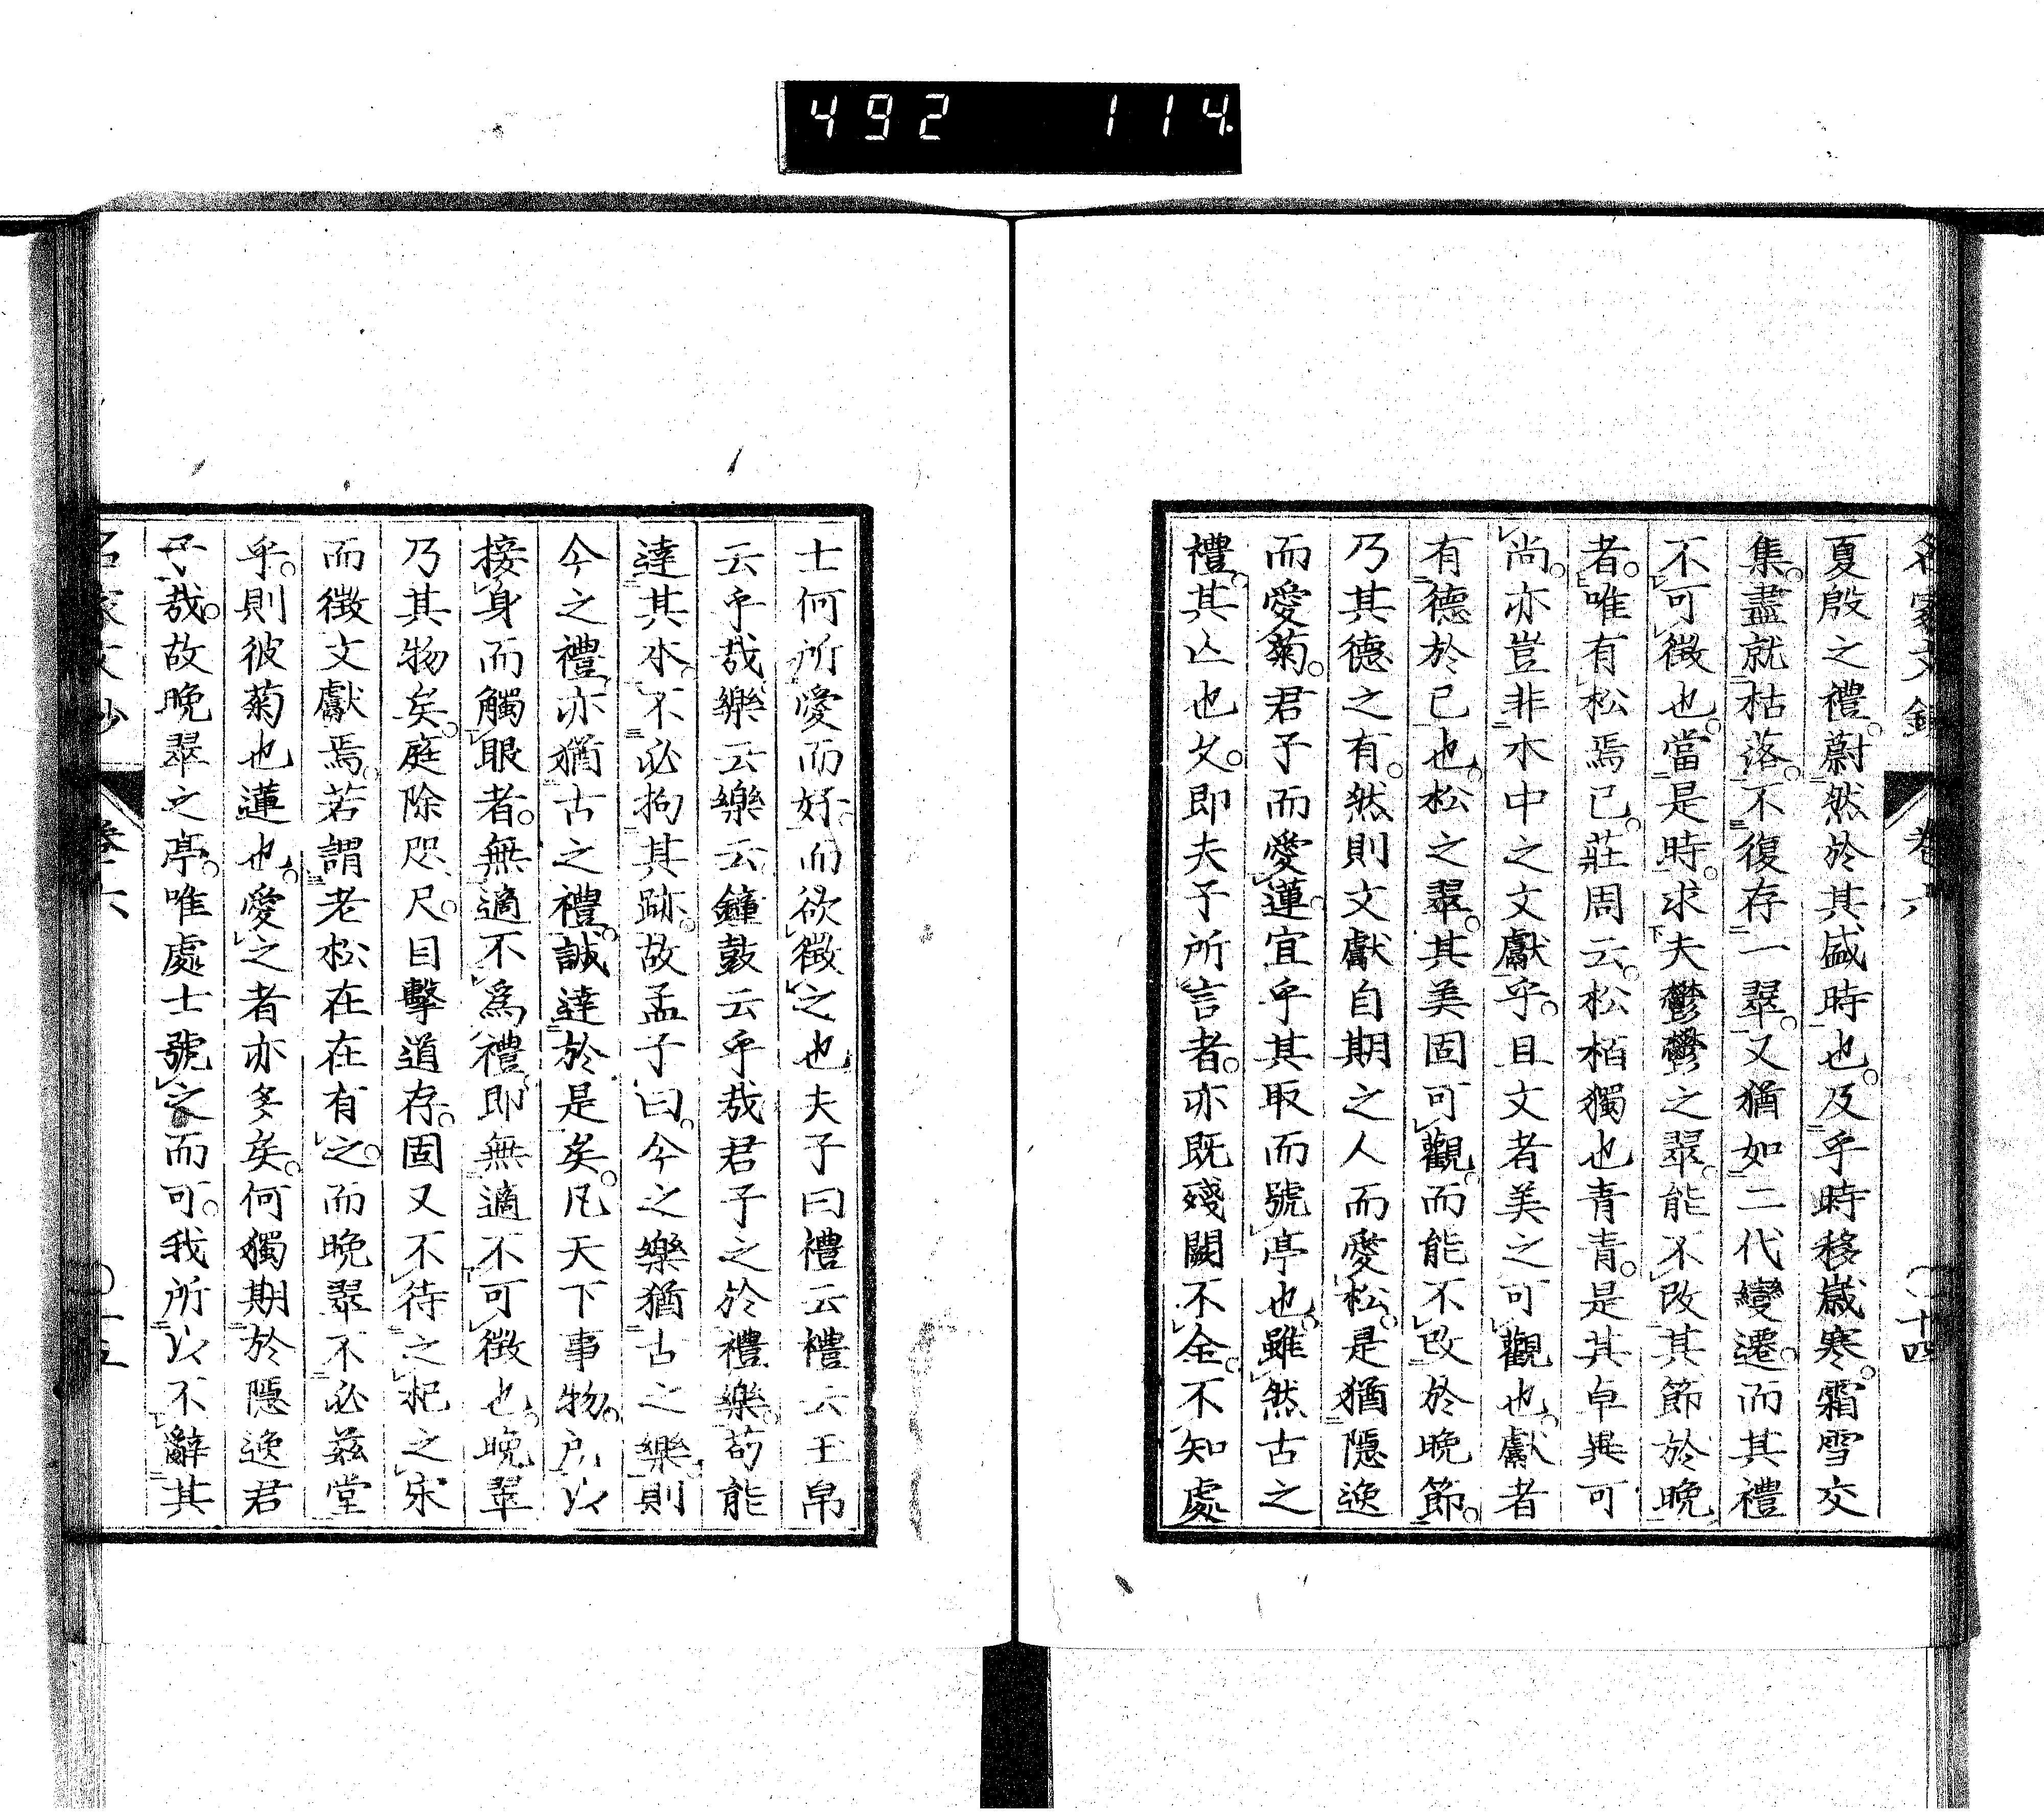 492 114
夏殷之禮。蔚然於其盛時也。及乎時移歳寒。霜雪交
集。盡就枯落。不復存一翠。又猶如二代變遷。而其禮
不可徴也。當是時。求夫鬱鬱之翠。能不改其節於晩
者。唯有松焉已。莊周云。松栢獨也青青。是其卓異可
尚。亦豈非木中之文獻乎。且文者美之可觀也。獻者
有德於己也。松之翠。其美固可觀。而能不改於晩節。
乃其德之有。然則文獻自期之人而愛松。是猶隱逸
而愛菊。君子而愛蓮。宜乎其取而號亭也。雖然古之
禮。其亾也久。即夫子所言者。亦既殘闕不全。不知處
士何所愛而好。而欲徴之也夫子曰禮云禮云玉帛
云乎哉樂云樂云鐘鼓云乎哉君子之於禮樂。苟能
達其本。不必拘其跡。故孟子曰。今之樂猶古之樂。則
今之禮。亦猶古之禮。誠達於是矣。凡天下事物。所以
接身而觸眼者。無適不爲禮。即無適不可徴也。晩翠
乃其物矣。庭除咫尺。目擊道存。固又不待之杞之宋
而徴文獻焉。若謂老松在在有之。而晩翠不必茲堂
乎。則彼菊也蓮也。愛之者亦多矣。何獨期於隱逸君
子哉。故晩翠之亭。唯處士號之而可。我所以不辭其